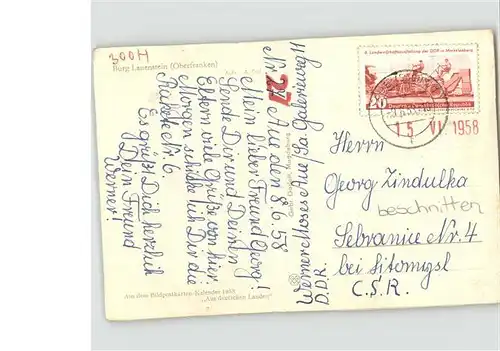 300H
Burg Lauenstein (Oberfranken)
Werner Moses Aue/Sa. Galerieweg 11
D.D.R.
Nr. 27 Aue den 8.6.58
27
Mein lieber Freund Georg!
Sende Dir und Deinen
Eltern viele Grüße von hier.
Morgen schicke ich Dir die
Rakete Nr. 6.
Es grüßt Dich herzlich
Dein Freund
Werner!
Aus dem Bildpostkarten-Kalender 1958
"Aus deutschen Landen"
6. Landwirtschaftsausstellung der DDR in Markkleeberg
20 Deutsche Demokratische Republik
15 VI 1958
Herrn
Georg Zindulka
beschnitten
Sebranice Nr. 4
bei Litomysl
Č.S.R.